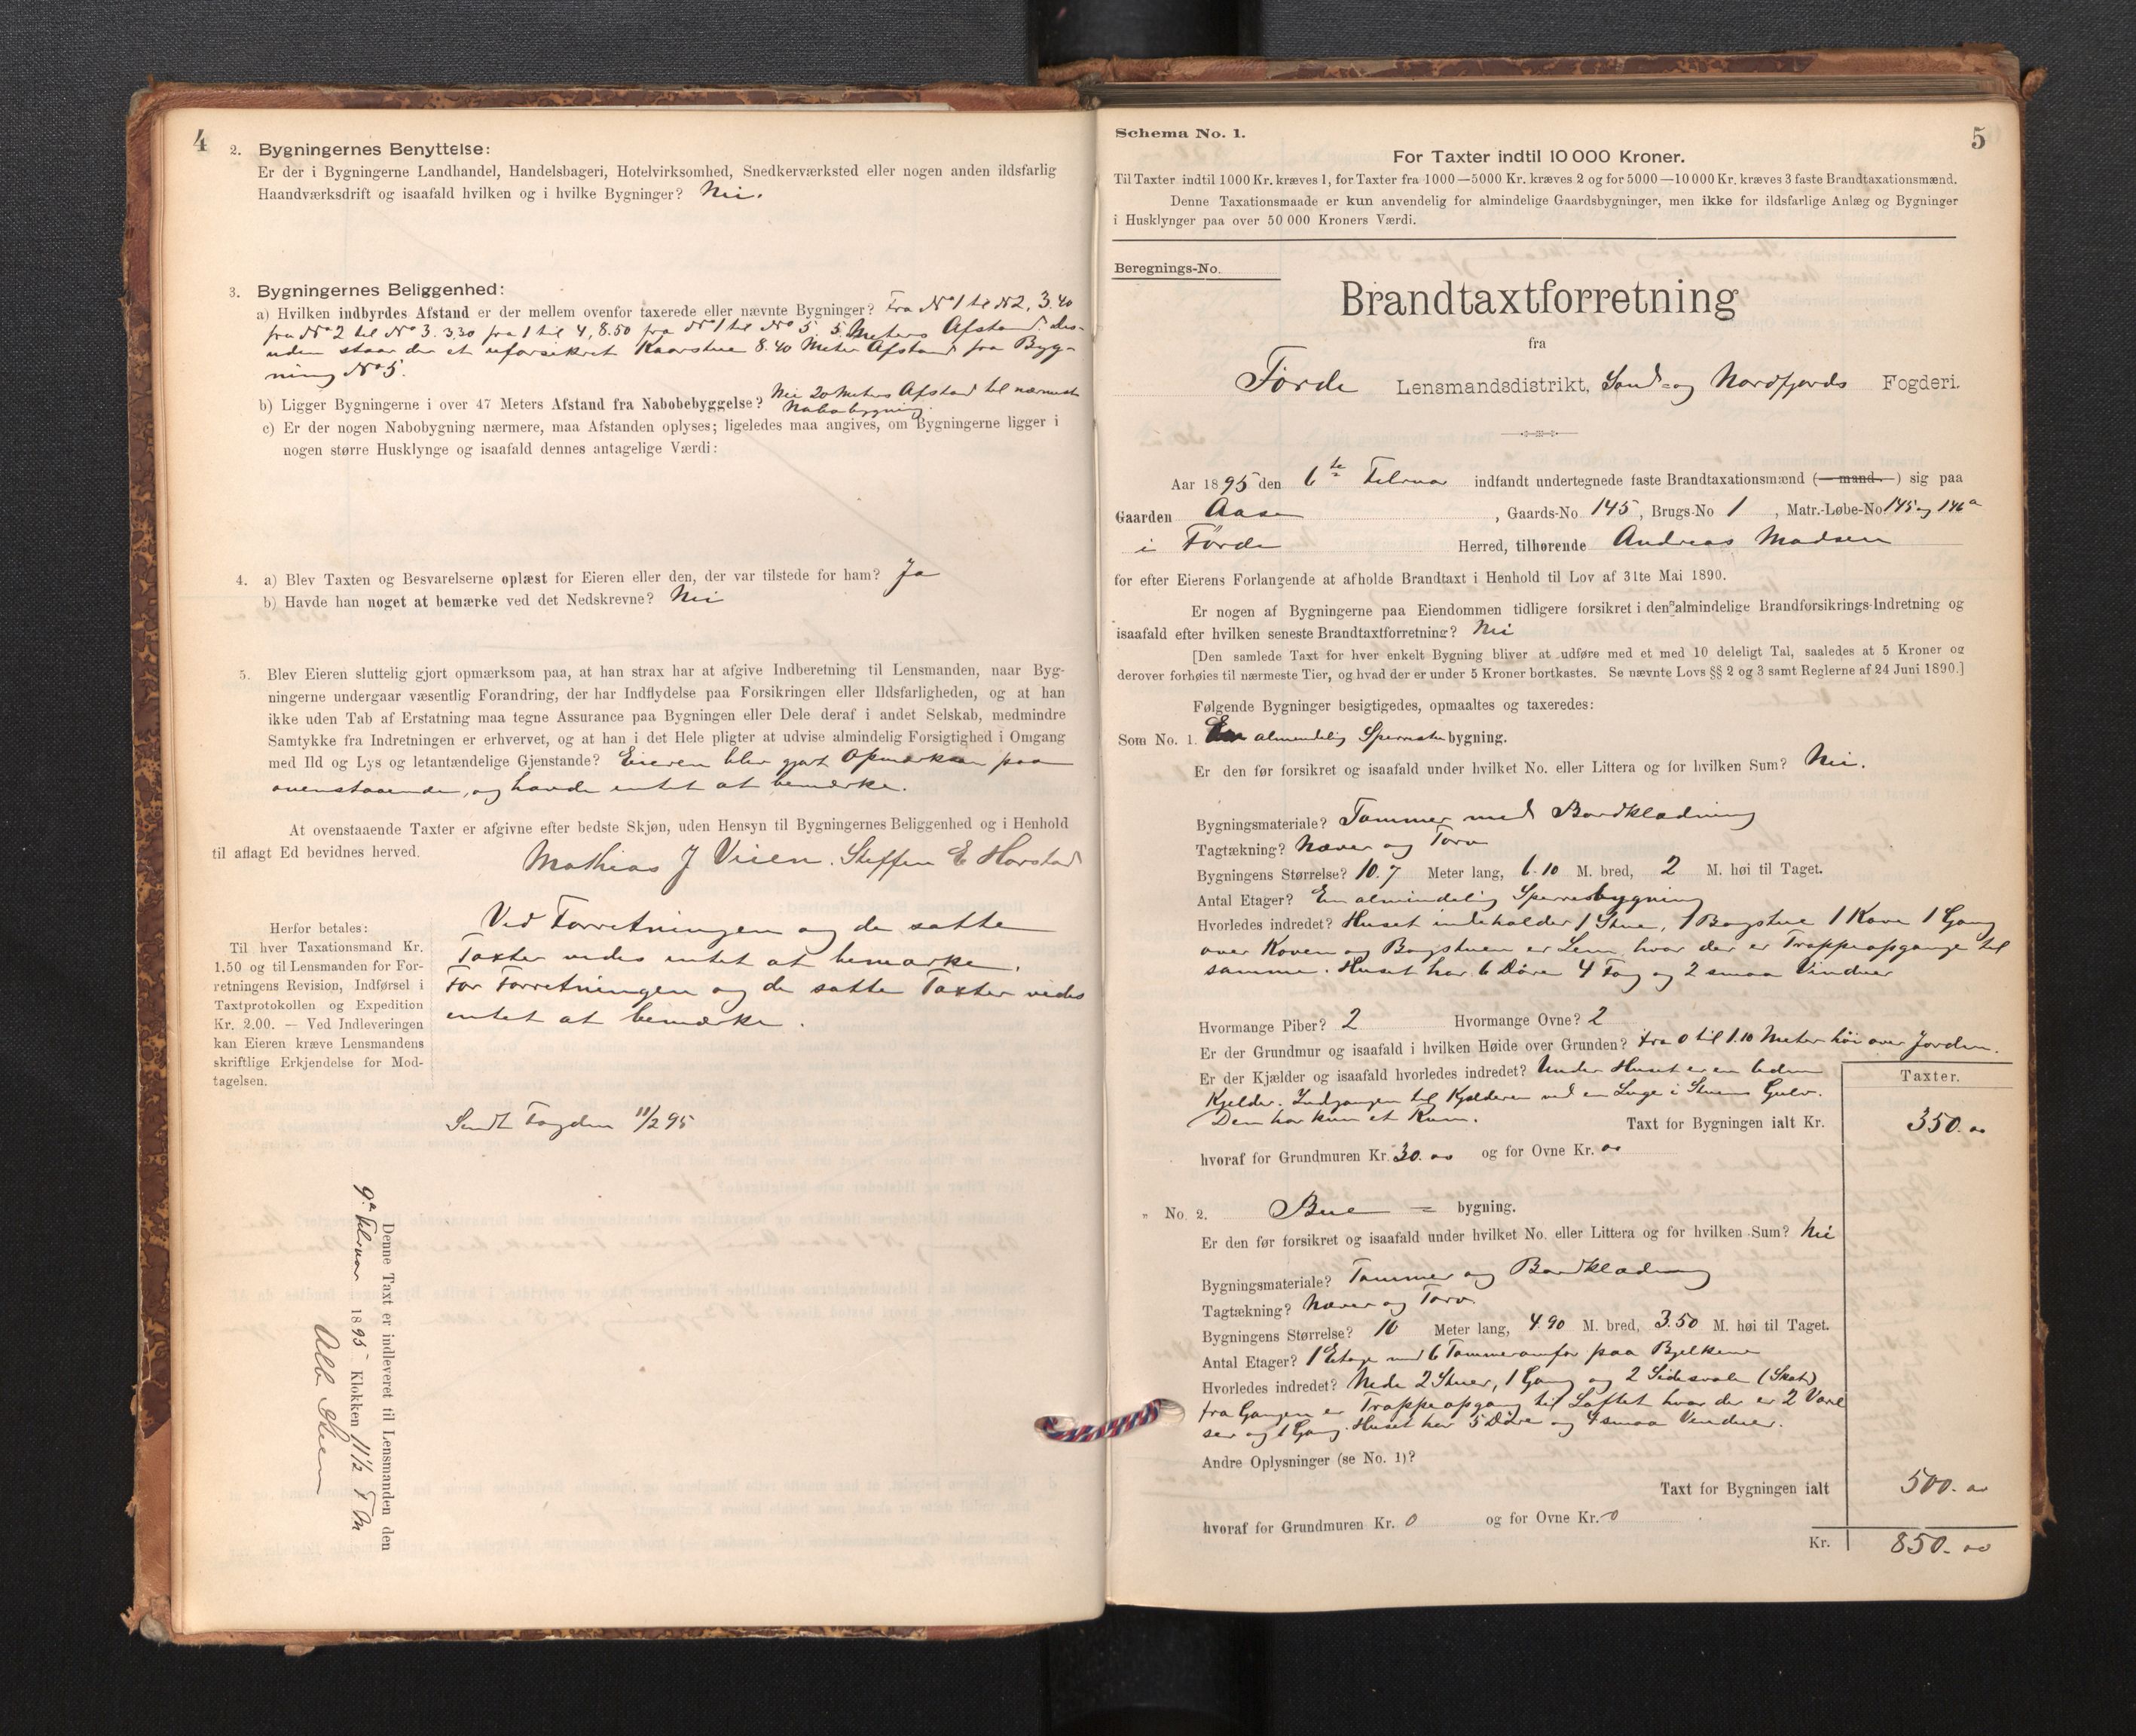 4
2. Bygningernes Benyttelse:
Er der i Bygningerne Landhandel, Handelsbageri, Hotelvirksomhed, Snedkerværksted eller nogen anden ildsfarlig
Haandværksdrift og isaafald hvilken og i hvilke Bygninger? Nei.
3. Bygningernes Beliggenhed:
a) Hvilken indbyrdes Afstand er der mellem ovenfor taxerede eller nævnte Bygninger? Fra No 1 til N 2, 3.40
fra No 2 til No 3. 3.30 fra 1 til 4, 8.50 fra No 1 til No 5. 5 Meters Afstand. des-
uden staar der et uforsikret Kaarstue 8.40 Meter Afstand fra Byg-
ning No 5.
b) Ligger Bygningerne i over 47 Meters Afstand fra Nabobebyggelse? Nei 20 Meters Afstand til nærmeste
Nabobygning.
c) Er der nogen Nabobygning nærmere, maa Afstanden oplyses; ligeledes maa angives, om Bygningerne ligger i
nogen større Husklynge og isaafald dennes antagelige Værdi:
4. a) Blev Taxten og Besvarelserne oplæst for Eieren eller den, der var tilstede for ham? Ja
b) Havde han noget at bemærke ved det Nedskrevne? Nei
5. Blev Eieren sluttelig gjort opmærksom paa, at han strax har at afgive Indberetning til Lensmanden, naar Byg-
ningerne undergaar væsentlig Forandring, der har Indflydelse paa Forsikringen eller Ildsfarligheden, og at han
ikke uden Tab af Erstatning maa tegne Assurance paa Bygningen eller Dele deraf i andet Selskab, medmindre
Samtykke fra Indretningen er erhvervet, og at han i det Hele pligter at udvise almindelig Forsigtighed i Omgang
med Ild og Lys og letantændelige Gjenstande? Eieren blev gjort Opmærksom paa
ovenstaaende, og havde intet at bemærke.
At ovenstaaende Taxter er afgivne efter bedste Skjøn, uden Hensyn til Bygningernes Beliggenhed og i Henhold
til aflagt Ed bevidnes herved.
Mathias J Vieen. Steffen E Horstad
Herfor betales:
Til hver Taxationsmand Kr.
1.50 og til Lensmanden for For-
retningens Revision, Indførsel i
Taxtprotokollen og Expedition
Kr. 2.00. — Ved Indleveringen
kan Eieren kræve Lensmandens
skriftlige Erkjendelse for Mod-
tagelsen.
Ved Forretningen og de satte
Taxter vides intet at bemærke.
For Forretningen og de satte Taxter vides
intet at bemærke.
Sendt Fogden 11/2 95
Denne Taxt er indleveret til Lensmanden den
9de Februar 1895 Klokken 11 1/2 F M
5
Schema No. 1.
For Taxter indtil 10 000 Kroner.
Til Taxter indtil 1000 Kr. kræves 1, for Taxter fra 1000—5000 Kr. kræves 2 og for 5000—10 000 Kr. kræves 3 faste Brandtaxationsmænd.
Denne Taxationsmaade er kun anvendelig for almindelige Gaardsbygninger, men ikke for ildsfarlige Anlæg og Bygninger
i Husklynger paa over 50 000 Kroners Værdi.
Beregnings-No.
Brandtaxtforretning
fra
Førde Lensmandsdistrikt, Sønd- og Nordfjords Fogderi.
Aar 1895 den 6te Februar indfandt undertegnede faste Brandtaxationsmænd (mand) sig paa
Gaarden Aase, Gaards-No 145, Brugs-No 1, Matr.-Løbe-No 145 og 146a
i Førde Herred, tilhørende Andreas Madsen
for efter Eierens Forlangende at afholde Brandtaxt i Henhold til Lov af 31te Mai 1890.
Er nogen af Bygningerne paa Eiendommen tidligere forsikret i den almindelige Brandforsikrings-Indretning og
isaafald efter hvilken seneste Brandtaxtforretning? Nei
[Den samlede Taxt for hver enkelt Bygning bliver at udføre med et med 10 deleligt Tal, saaledes at 5 Kroner og
derover forhøies til nærmeste Tier, og hvad der er under 5 Kroner bortkastes. Se nævnte Lovs §§ 2 og 3 samt Reglerne af 24 Juni 1890.]
Følgende Bygninger besigtigedes, opmaaltes og taxeredes:
Som No. 1. En almendelig Sperrestubygning.
Er den før forsikret og isaafald under hvilket No. eller Littera og for hvilken Sum? Nei.
Bygningsmateriale? Tømmer med Bordklædning
Tagtækning? Næver og Torv
Bygningens Størrelse? 10.7 Meter lang, 6.10 M. bred, 2 M. høi til Taget.
Antal Etager? En almindelig Sperresbygning
Hvorledes indredet? Huset indeholder 1 Stue, 1 Bagstue 1 Kove 1 Gang
over Koven og Bagstuen er Lem, hvor der er Trappeopgange til
samme. Huset har 6 Døre 4 Fag og 2 smaa Vinduer
Hvormange Piber? 2 Hvormange Ovne? 2
Er der Grundmur og isaafald i hvilken Høide over Grunden? Fra 0 til 1.10 Meter høi over Jorden.
Er der Kjælder og isaafald hvorledes indredet? Under Huset er en liden
Kjelder. Indgangen til Kjelderen ved en Luge i Stuens Gulv.
Den har kun et Rum.
Taxter.
Taxt for Bygningen ialt Kr. 350.00
hvoraf for Grundmuren Kr. 30.00 og for Ovne Kr. 00
" No. 2. Bue = bygning.
Er den før forsikret og isaafald under hvilket No. eller Littera og for hvilken Sum? Nei
Bygningsmateriale? Tømmer og Bordklædning
Tagtækning? Næver og Torv.
Bygningens Størrelse? 10 Meter lang, 4.90 M. bred, 3.50 M. høi til Taget.
Antal Etager? 1 Etage med 6 Tømmeromfar paa Bjelkerne
Hvorledes indredet? Nede 2 Stuer, 1 Gang og 2 Sidesvale (Skot)
fra Gangen er Trappeopgang til Loftet hvor der er 2 Værel
ser og 1 Gang. Huset har 5 Døre og 4 smaa Vinduer.
Andre Oplysninger (se No. 1)?
Taxt for Bygningen ialt 500.00
hvoraf for Grundmuren Kr. 0 og for Ovne Kr. 0
Kr. 850.00